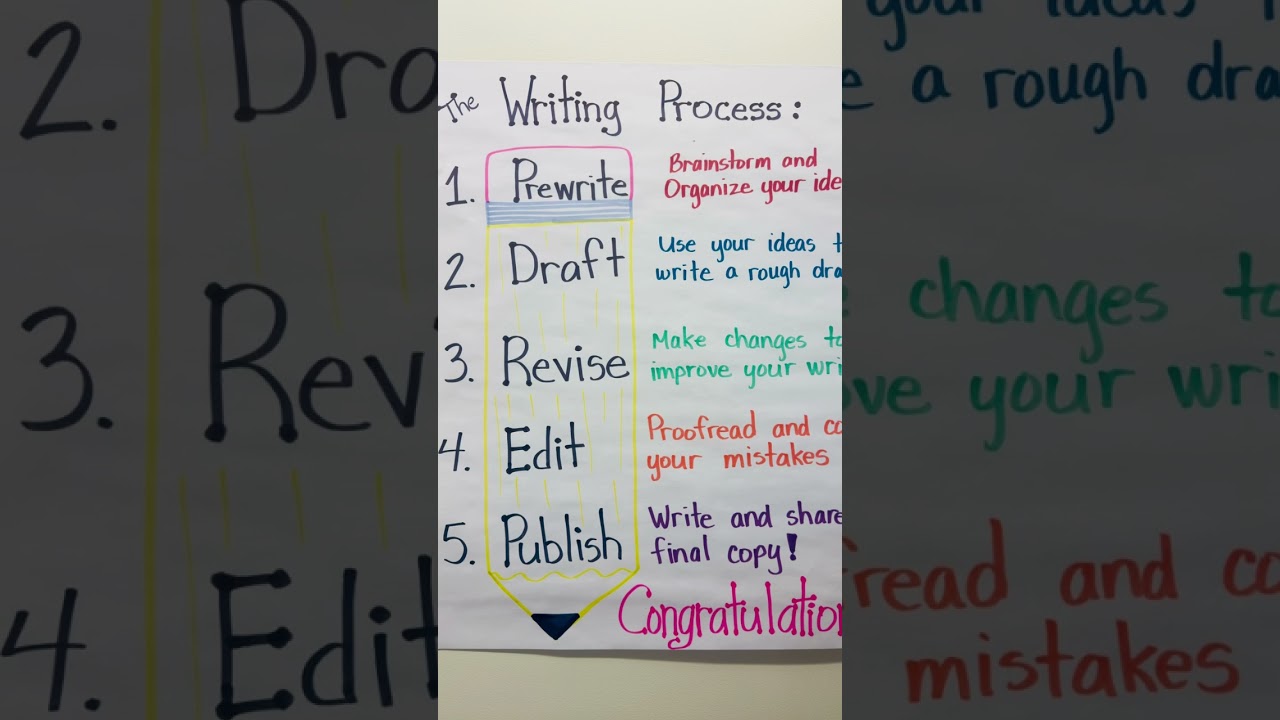 The Writing Process:
1. Prewrite
Brainstorm and
Organize your ide
2. Draft
Use your ideas t
write a rough dra
3. Revise
Make changes to
improve your wri
4. Edit
Proofread and co
your mistakes
5. Publish
Write and share
final copy!
Congratulation